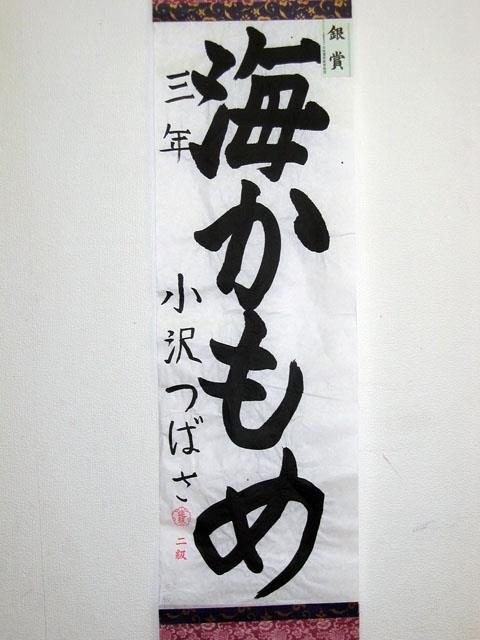 銀賞
海かもめ
三年 小沢つばさ
二級